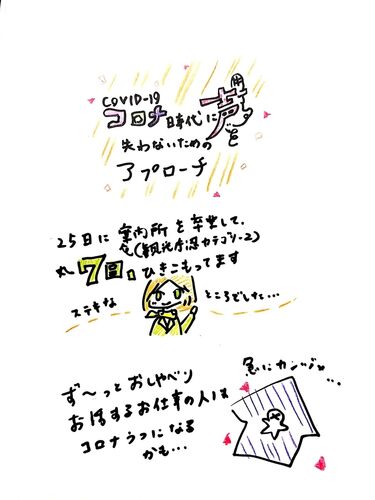 COVID-19
コロナ時代に声を
失わないための
アプローチ
25日に案内所を卒業して、
(観光庁認カテゴリー2)
丸7日、ひきこもってます
ステキな ところでした…
ず〜っとおしゃべり
お話するお仕事の人は
コロナうつになる
かも…
急にカンジる…